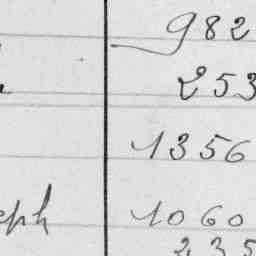 982
253
1356
eph 1060
235